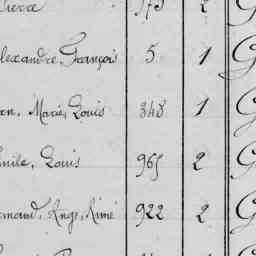 Pierre 2 G
Alexandre, François 5 1 G
Marie, Louis 348 1 G
Émile, Louis 965 2 G
Ange, Aimé 922 2 G